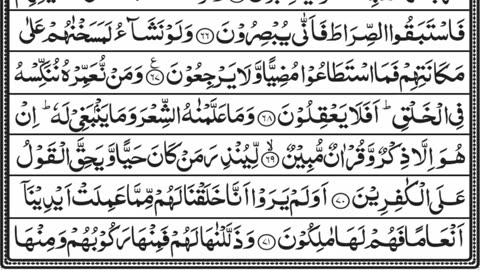 فَاسْتَبَقُوا الصِّرَاطَ فَاَنّٰى يُبْصِرُوْنَ ﴿۶۶﴾ وَلَوْ نَشَآءُ لَمَسَخْنٰهُمْ عَلٰى
مَكَانَتِهِمْ فَمَا اسْتَطَاعُوْا مُضِيًّا وَّلَا يَرْجِعُوْنَ ﴿۶۷﴾ ع وَمَنْ نُّعَمِّرْهُ نُنَكِّسْهُ
فِى الْخَلْقِ ؕ اَفَلَا يَعْقِلُوْنَ ﴿۶۸﴾ وَمَا عَلَّمْنٰهُ الشِّعْرَ وَمَا يَنْۢبَغِىْ لَهٗ ؕ اِنْ
هُوَ اِلَّا ذِكْرٌ وَّقُرْاٰنٌ مُّبِيْنٌ ﴿۶۹﴾ ۙ لِّيُنْذِرَ مَنْ كَانَ حَيًّا وَّيَحِقَّ الْقَوْلُ
عَلَى الْكٰفِرِيْنَ ﴿۷۰﴾ اَوَلَمْ يَرَوْا اَنَّا خَلَقْنَا لَهُمْ مِّمَّا عَمِلَتْ اَيْدِيْنَاۤ
اَنْعَامًا فَهُمْ لَهَا مٰلِكُوْنَ ﴿۷۱﴾ وَذَلَّلْنٰهَا لَهُمْ فَمِنْهَا رَكُوْبُهُمْ وَمِنْهَا